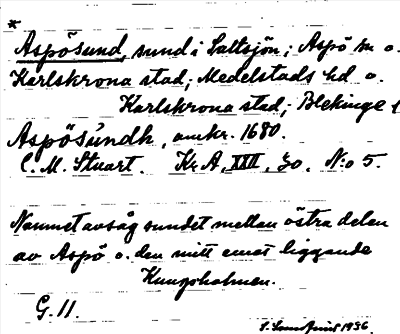 *
Aspösund, sund i Saltsjön; Aspö sn o.
Karlskrona stad; Medelstads hd o.
Karlskrona stad; Blekinge l
Aspösŭndh, omkr. 1680.
C. M. Stuart. Kr A, XXII, 30, N:o 5.
Namnet avsåg sundet mellan östra delen
av Aspö o. den mitt emot liggande
Kungsholmen.
G. 11.
1936